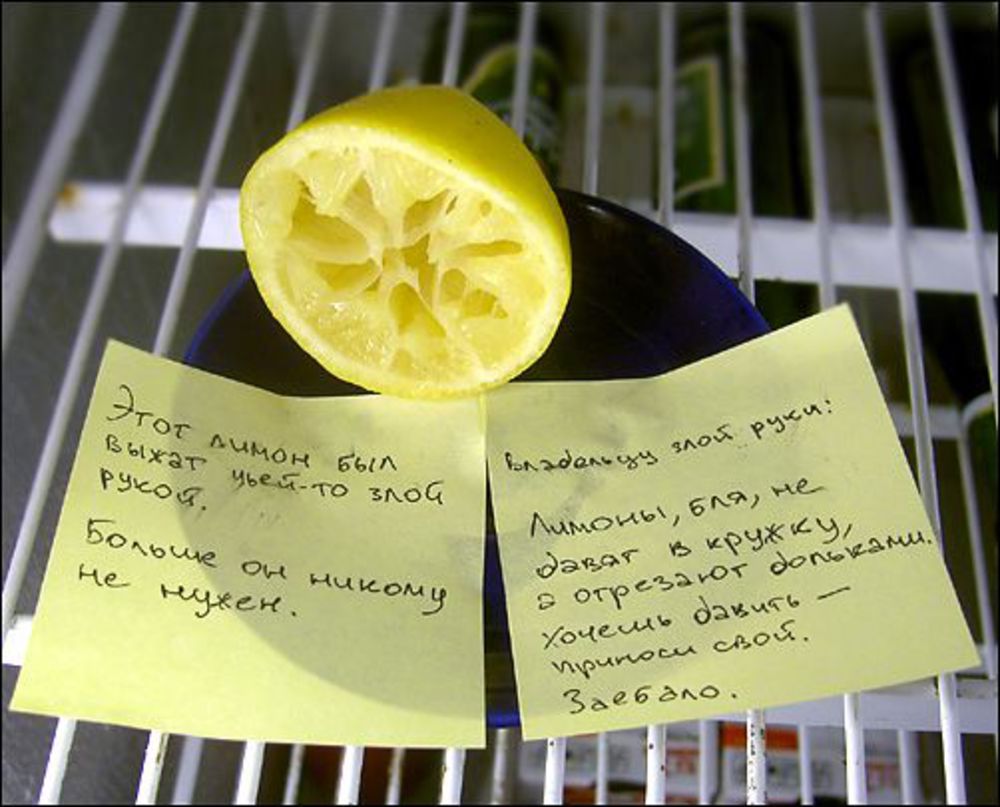 Этот лимон был
выжат чьей-то злой
рукой.
Больше он никому
не нужен.
Владельцу злой руки:
Лимоны, бля, не
давят в кружку,
а отрезают дольками.
Хочешь давить —
приноси свой.
Заебало.